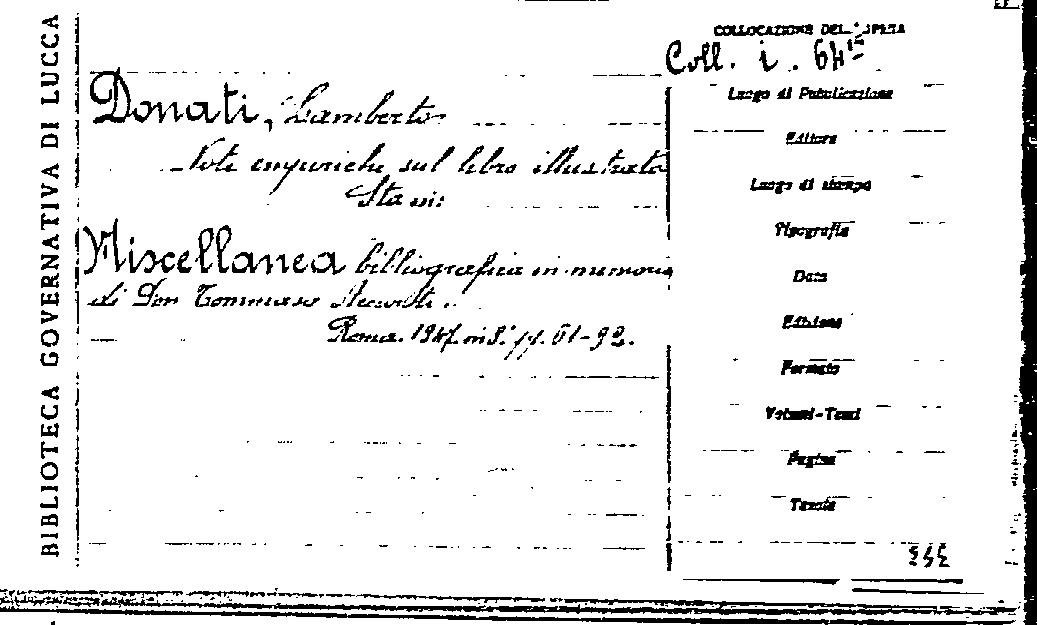 BIBLIOTECA GOVERNATIVA DI LUCCA
COLLOCAZIONE DELL'OPERA
Coll. i. 64
Donati, Lamberto
Note empiriche sul libro illustrato
Miscellanea bibliografica in memoria
di Don Tommaso Accurti.
Roma. 1947. in 8. pp. 61-92.
Luogo di Pubblicazione
Editore
Luogo di stampa
Tipografia
Data
Edizione
Formato
Volumi-Tomi
Pagine
Tavole